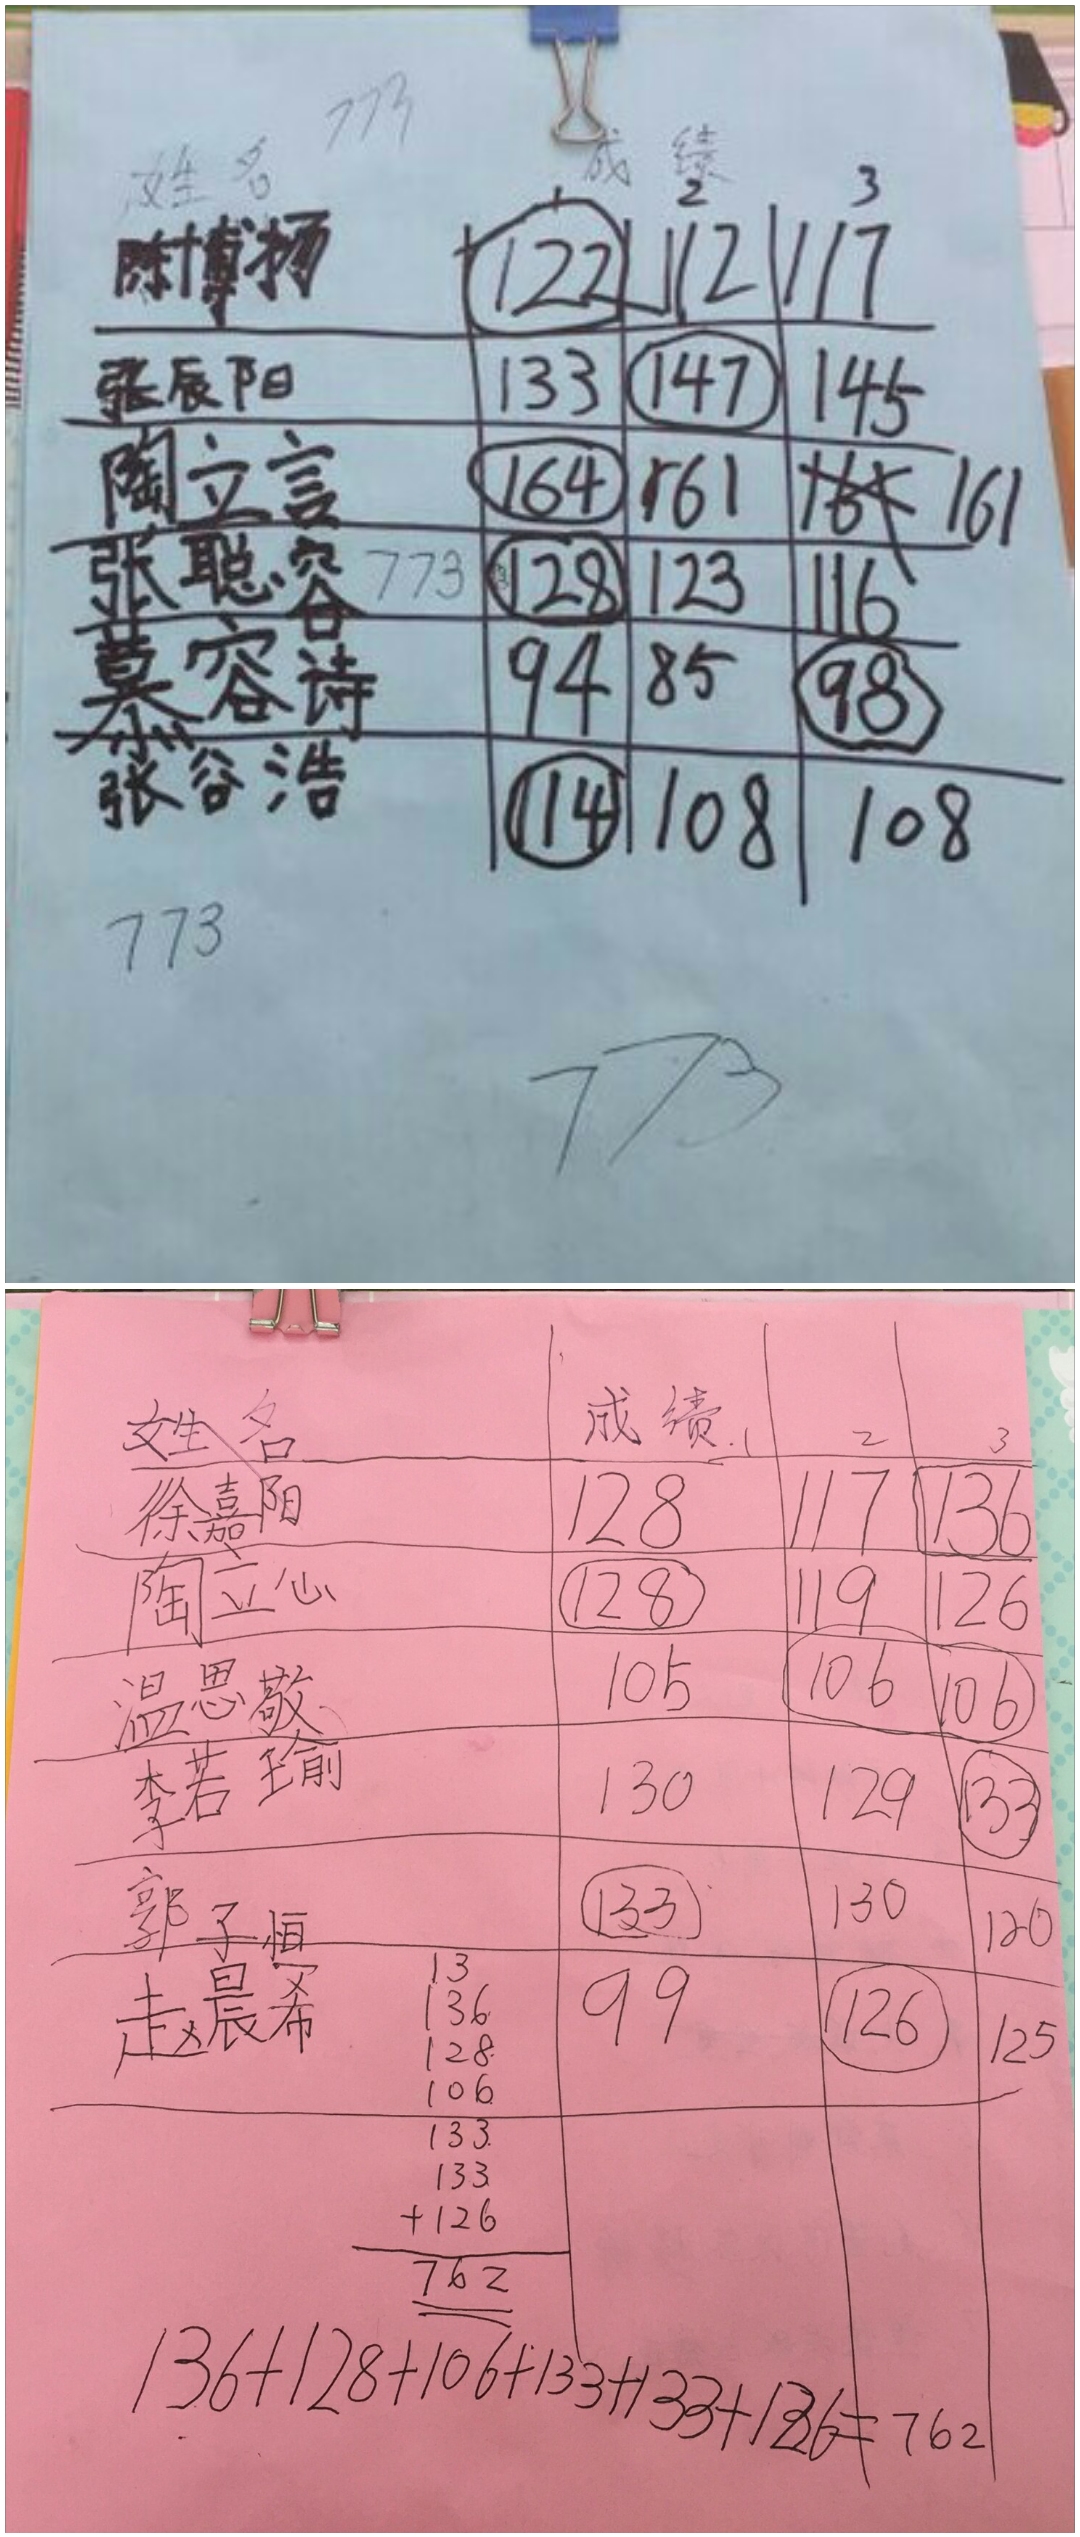 773
姓名 成绩
1 2 3
陈博扬 122 112 117
张辰阳 133 147 145
陶立言 164 161 161
张聪容 773 128 123 116
慕容诗 94 85 98
张谷浩 114 108 108
773
773
姓名 成绩 1 2 3
徐嘉阳 128 117 136
陶立心 128 119 126
温思敬 105 106 106
李若瑜 130 129 133
郭子恒 133 130 120
赵晨希 99 126 125
13
136
128
106
133
133
+126
762
136+128+106+133+133+126=762